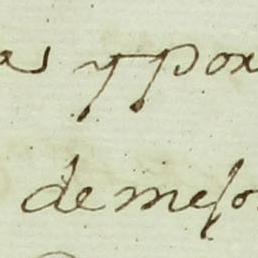 as y por
de meso